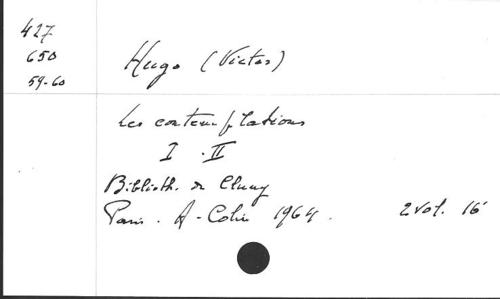 427
650
59-60
Hugo (Victor)
Les contemplations
I. II
Biblioth. de Cluny
Paris. A. Colin 1964. 2 vol. 16°